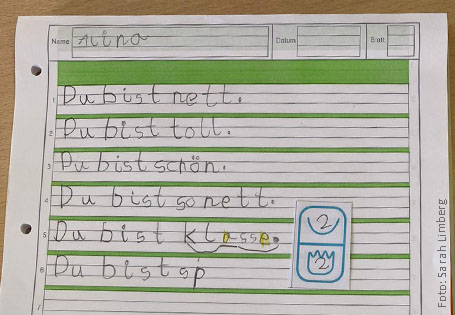 Name Alina Datum Blatt
1 Du bist nett.
2 Du bist toll.
3 Du bist schön.
4 Du bist so nett.
5 Du bist klasse. 2
6 Du bist sp 2
7
Foto: Sarah Limberg